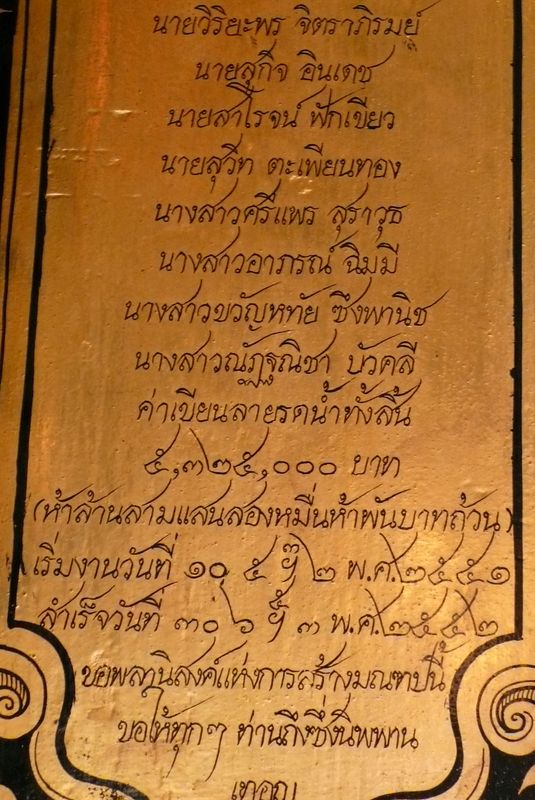 นายวิริยะพร จิตราภิรมย์
นายสุกิจ อินเดช
นายสาโรจน์ ฟักเขียว
นายสุวิท ตะเพียนทอง
นางสาวศรีแพร สุราวุธ
นางสาวอาภรณ์ ฉิมมี
นางสาวขวัญหทัย ซึงพานิช
นางสาวณัฏฐณิชา บัวคลี่
ค่าเขียนลายรดน้ำทั้งสิ้น
๕,๓๒๕,๐๐๐ บาท
(ห้าล้านสามแสนสองหมื่นห้าพันบาทถ้วน)
เริ่มงานวันที่ ๑๐ ๕ ฯ ๒ พ.ศ.๒๕๕๑
สำเร็จวันที่ ๓๐ ๖ ฯ ๓ พ.ศ.๒๕๕๒
ขอพลานิสงค์แห่งการสร้างมณฑปนี้
ขอให้ทุกๆ ท่านถึงซึ่งนิพพาน
เทอญ